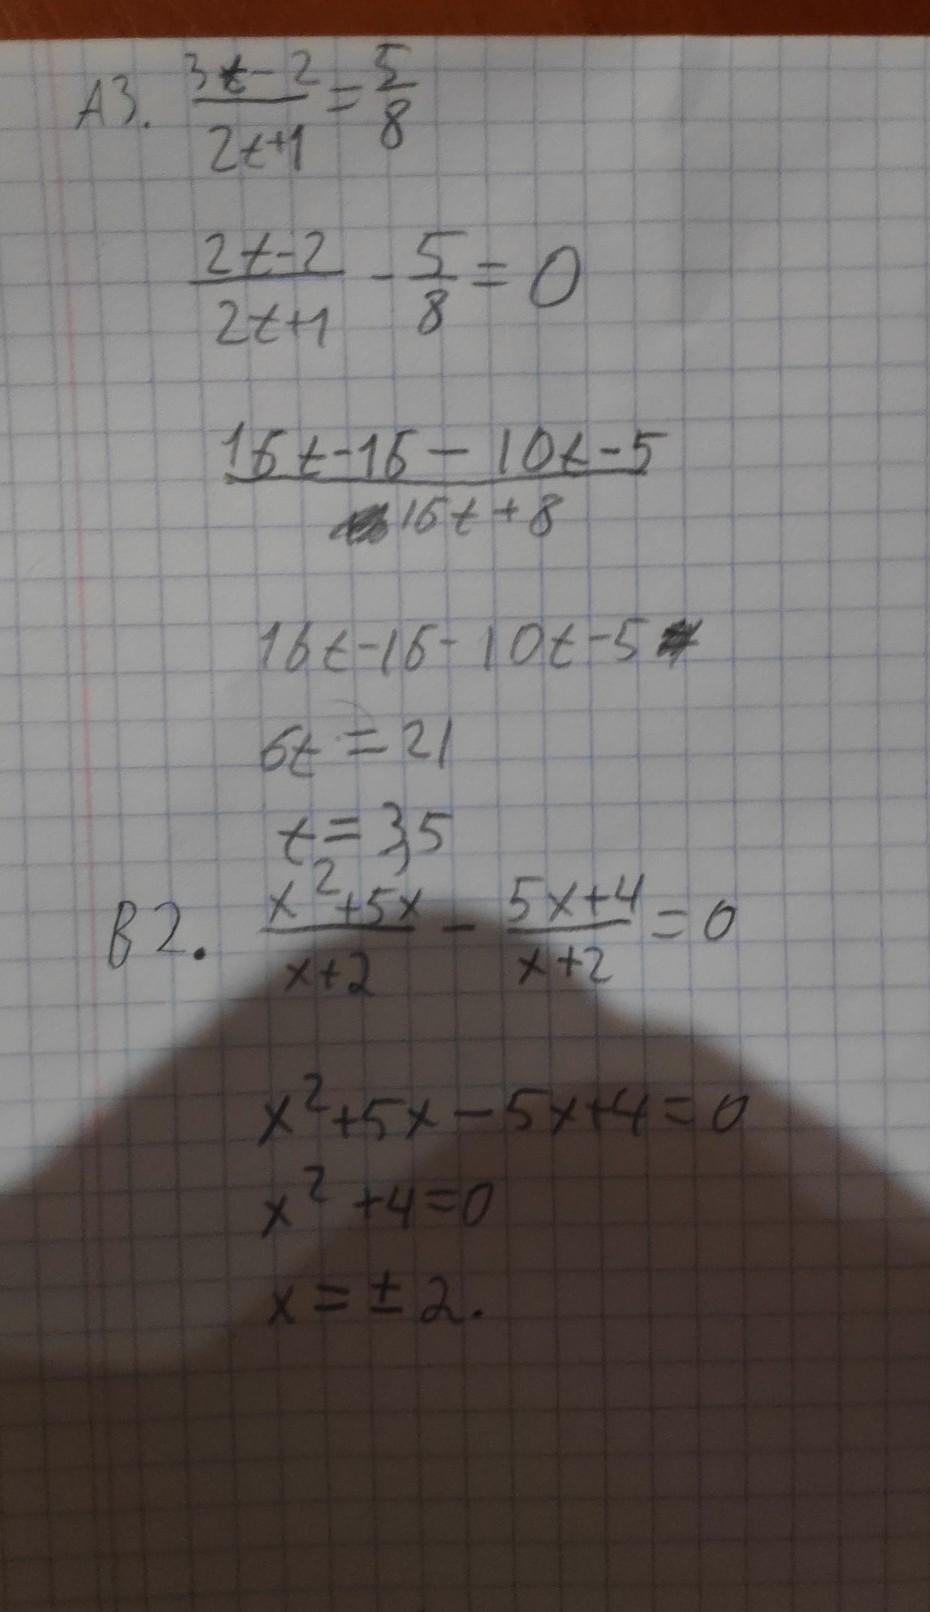 A3. (3t-2)/(2t+1) = 5/8
(2t-2)/(2t+1) - 5/8 = 0
(16t-16 - 10t-5)/(16t+8)
16t-16-10t-5
6t = 21
t = 3,5
B2. (x²+5x)/(x+2) - (5x+4)/(x+2) = 0
x²+5x-5x+4=0
x²+4=0
x = ± 2.